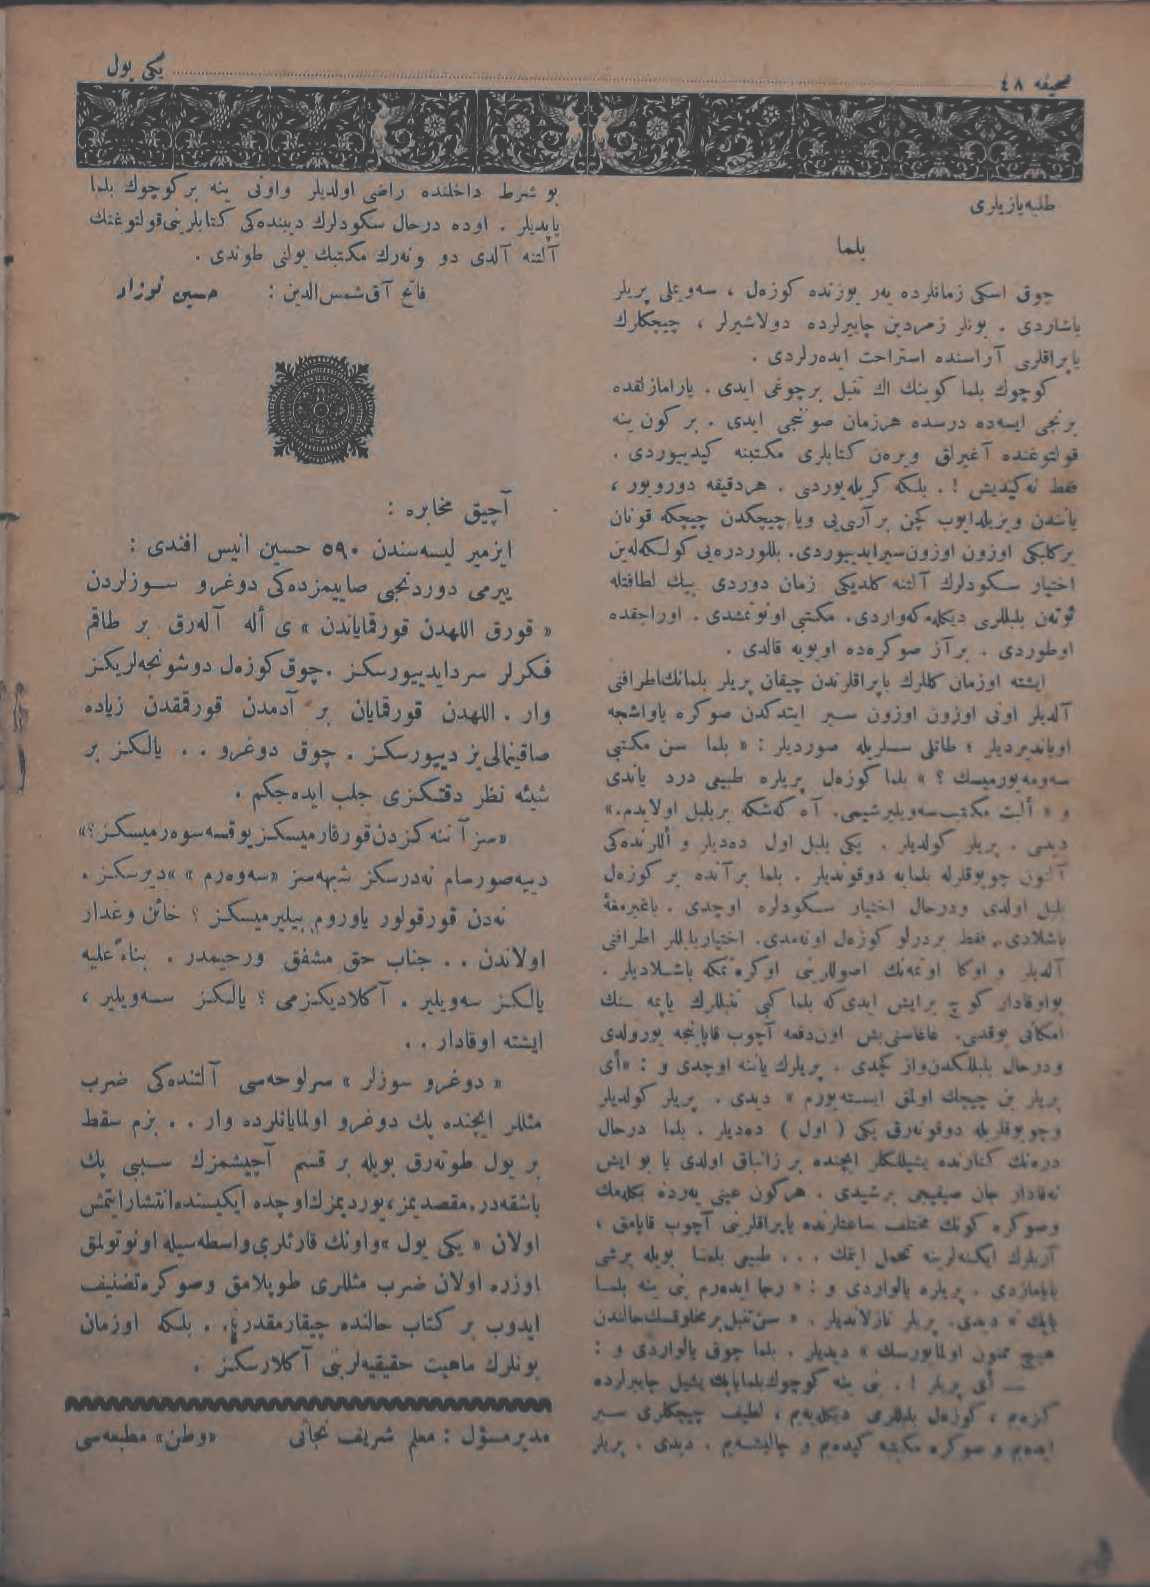 صحیفه ٤٨
یكی یول
طلبه یازیلری
یلما
چوق اسكی زمانلرده یه‌ر یوزنده كوزه‌ل ، سه‌ویملی پریلر
یاشاردی . بونلر زمردین چایرلرده دولاشیرلر ، چیچكلرك
یاپراقلری آراسنده استراحت ایده‌رلردی .
كوچوك یلما كوینك اك تنبل برچوغی ایدی . یارامازلقده
برنجی ایسه‌ده درسده هرزمان صوننجی ایدی . بر كون ینه
قولتوغنده آغیرلق ویره‌ن كتابلری مكتبنه كیدییوردی .
فقط نه كیدیش ! . بلكه كریله‌یوردی . هردقیقه دورویور ،
یانندن ویزیلدایوب كچن بر آری‌یی ویا چیچكدن چیچكه قونان
بركلبكی اوزون اوزون سیرایدییوردی. بللوردره‌یی كولكه‌له‌ین
اختیار سكودلرك آلتنه كلدیكی زمان دوردی بیك لطافتله
ئوته‌ن بلبللری دیكله‌مكه‌واردی. مكتبی اونوتمشدی . اوراجقده
اوطوردی . برآز صوكره‌ده اویویه قالدی .
ایشته اوزمان كللرك یاپراقلرندن چیقان پریلر یلمانك‌اطرافنی
آلدیلر اونی اوزون اوزون سیر ایتدكدن صوكره یاواشجه
اویاندیردیلر ؛ طاتلی سسلریله صوردیلر : « یلما سن مكتبی
سه‌ومه‌یورمیسك ؟ » یلما كوزه‌ل پریلره طبیعی درد یاندی
و « ألبت مكتب‌سه‌ویلیرشیمی. آه كه‌شكه بربلبل اولایدم.»
دیدی . پریلر كولدیلر . یكی بلبل اول ده‌دیلر و أللرنده‌كی
آلتون چوبوقلرله یلمایه دوقوندیلر . یلما برآنده بر كوزه‌ل
بلبل اولدی ودرحال اختیار سكودلره اوچدی . باغیرمغه
باشلادی. فقط بردرلو كوزه‌ل اوته‌مدی. اختیاربلبللر اطرافنی
آلدیلر و اوكا اوتمه‌نك اصوللرینی اوكرتمكه باشلادیلر .
بواوقادار كو چ برایش ایدی‌كه یلما كبی تنبللرك یاپمه سنك
امكانی یوقدی. غاغاسنی‌بش اون‌دفعه آچوب قاپاینجه یورولدی
ودرحال بلبللكدن‌واز كچدی . پریلرك یاننه اوچدی و : «أی
پریلر بن چیچك اولمق ایسته‌یورم » دیدی . پریلر كولدیلر
وچوبوقلریله دوقونه‌رق یكی ( اول ) ده‌دیلر . یلما درحال
دره‌نك كنارنده یشیللكلر ایچنده بر زانباق اولدی یا بو ایش
نه‌قادار جان صیقیجی برشیدی . هركون عینی یه‌رده بكله‌مك
وصوكره كونك مختلف ساعتلرنده یاپراقلرینی آچوب قاپامق ،
آریلرك ایكنه‌لرینه تحمل ایتمك . . . طبیعی یلما بویله برشی
یاپامازدی . پریلره یالواردی و : « رجا ایده‌رم بنی ینه یلما
یاپك » دیدی. پریلر نازلاندیلر . « سن‌تنبل‌برمخلوقسك‌حالندن
هیچ ممنون اولمایورسك » دیدیلر . یلما چوق یالواردی و :
— أی پریلر ! . بنی ینه كوچوك‌یلمایاپك‌یشیل چایرلرده
كزه‌یم ، كوزه‌ل بلبللری دیكله‌یه‌یم ، لطیف چیچكلری سیر
ایده‌یم و صوكره مكتبه كیده‌یم و چالیشه‌یم . دیدی . پریلر
بو شرط داخلنده راضی اولدیلر واونی ینه بركوچوك یلما
یاپدیلر . اوده درحال سكودلرك دیبنده‌كی كتابلرینی‌قولتوغنك
آلتنه آلدی دو ونه‌رك مكتبك یولنی طوتدی .
فاتح آق‌شمس‌الدین : حسین نوزاد
آچیق مخابره :
ایزمیر لیسه‌سندن ٥٩٠ حسین انیس افندی :
ییرمی دوردنجی صاییمزده‌كی دوغرو سوزلردن
« قورق اللهدن قورقمایاندن » ی أله آله‌رق بر طاقم
فكرلر سردایدییورسكز .چوق كوزه‌ل دوشونجه‌لریكز
وار . اللهدن قورقمایان بر آدمدن قورقمقدن زیاده
صاقینمالی‌یز دییورسكز . چوق دوغرو . . یالكز بر
شیئه نظر دقتكزی جلب ایده‌جكم .
«سزآننه كزدن‌قورقارمیسكزیوقسه‌سوه‌رمیسكز؟»
دییه‌صورسام نه‌درسكز شبهه‌سز «سه‌وه‌رم » »دیرسكز .
نه‌دن قورقولور یاوروم بیلیرمیسكز ؟ خائن وغدار
اولاندن . . جناب حق مشفق ورحیمدر . بناءً علیه
یالكز سه‌ویلیر . آكلادیكزمی ؟ یالكز سه‌ویلیر ،
ایشته اوقادار . .
« دوغرو سوزلر » سرلوحه‌سی آلتنده‌كی ضرب
مثللر ایچنده پك دوغرو اولمایانلرده وار . . بزم سقط
بر یول طوته‌رق بویله بر قسم آچیشمزك سببی پك
باشقه‌در.مقصدیمز،یوردیمزك‌اوجده ایكیسنده‌انتشارایتمش
اولان « یكی یول »واونك قارئلری‌واسطه‌سیله اونوتولمق
اوزره اولان ضرب مثللری طوپلامق وصوكره‌تصنیف
ایدوب بر كتاب حالنده چیقارمقدر. . بلكه اوزمان
بونلرك ماهیت حقیقیه‌لرینی آكلارسكز .
مدیرمسؤل : معلم شریف نجاتی «وطن» مطبعه‌سی